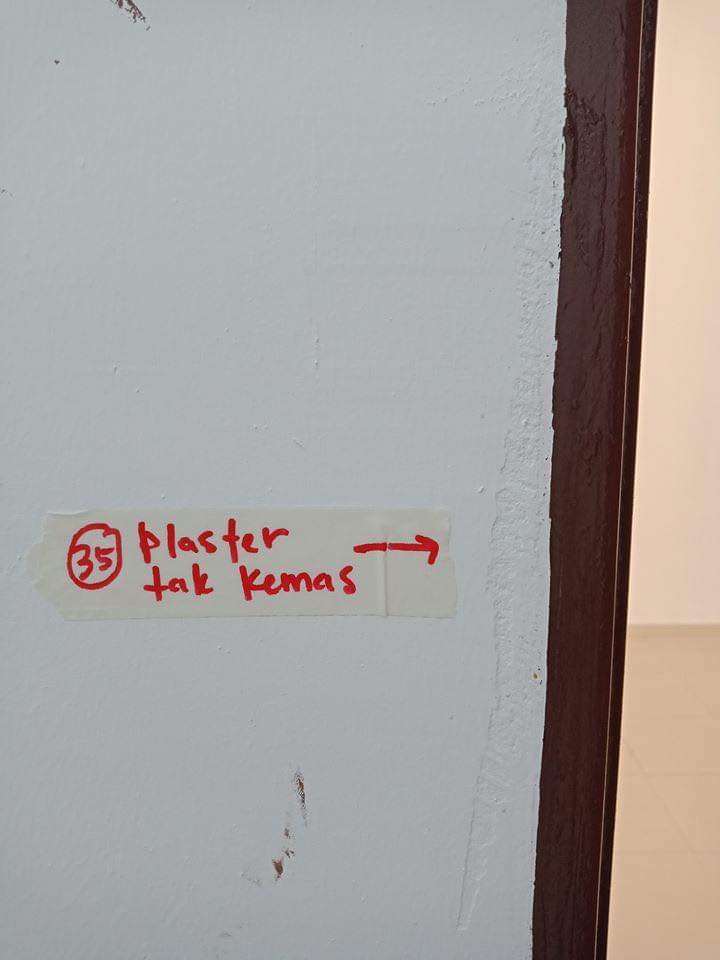 35 plaster →
tak kemas